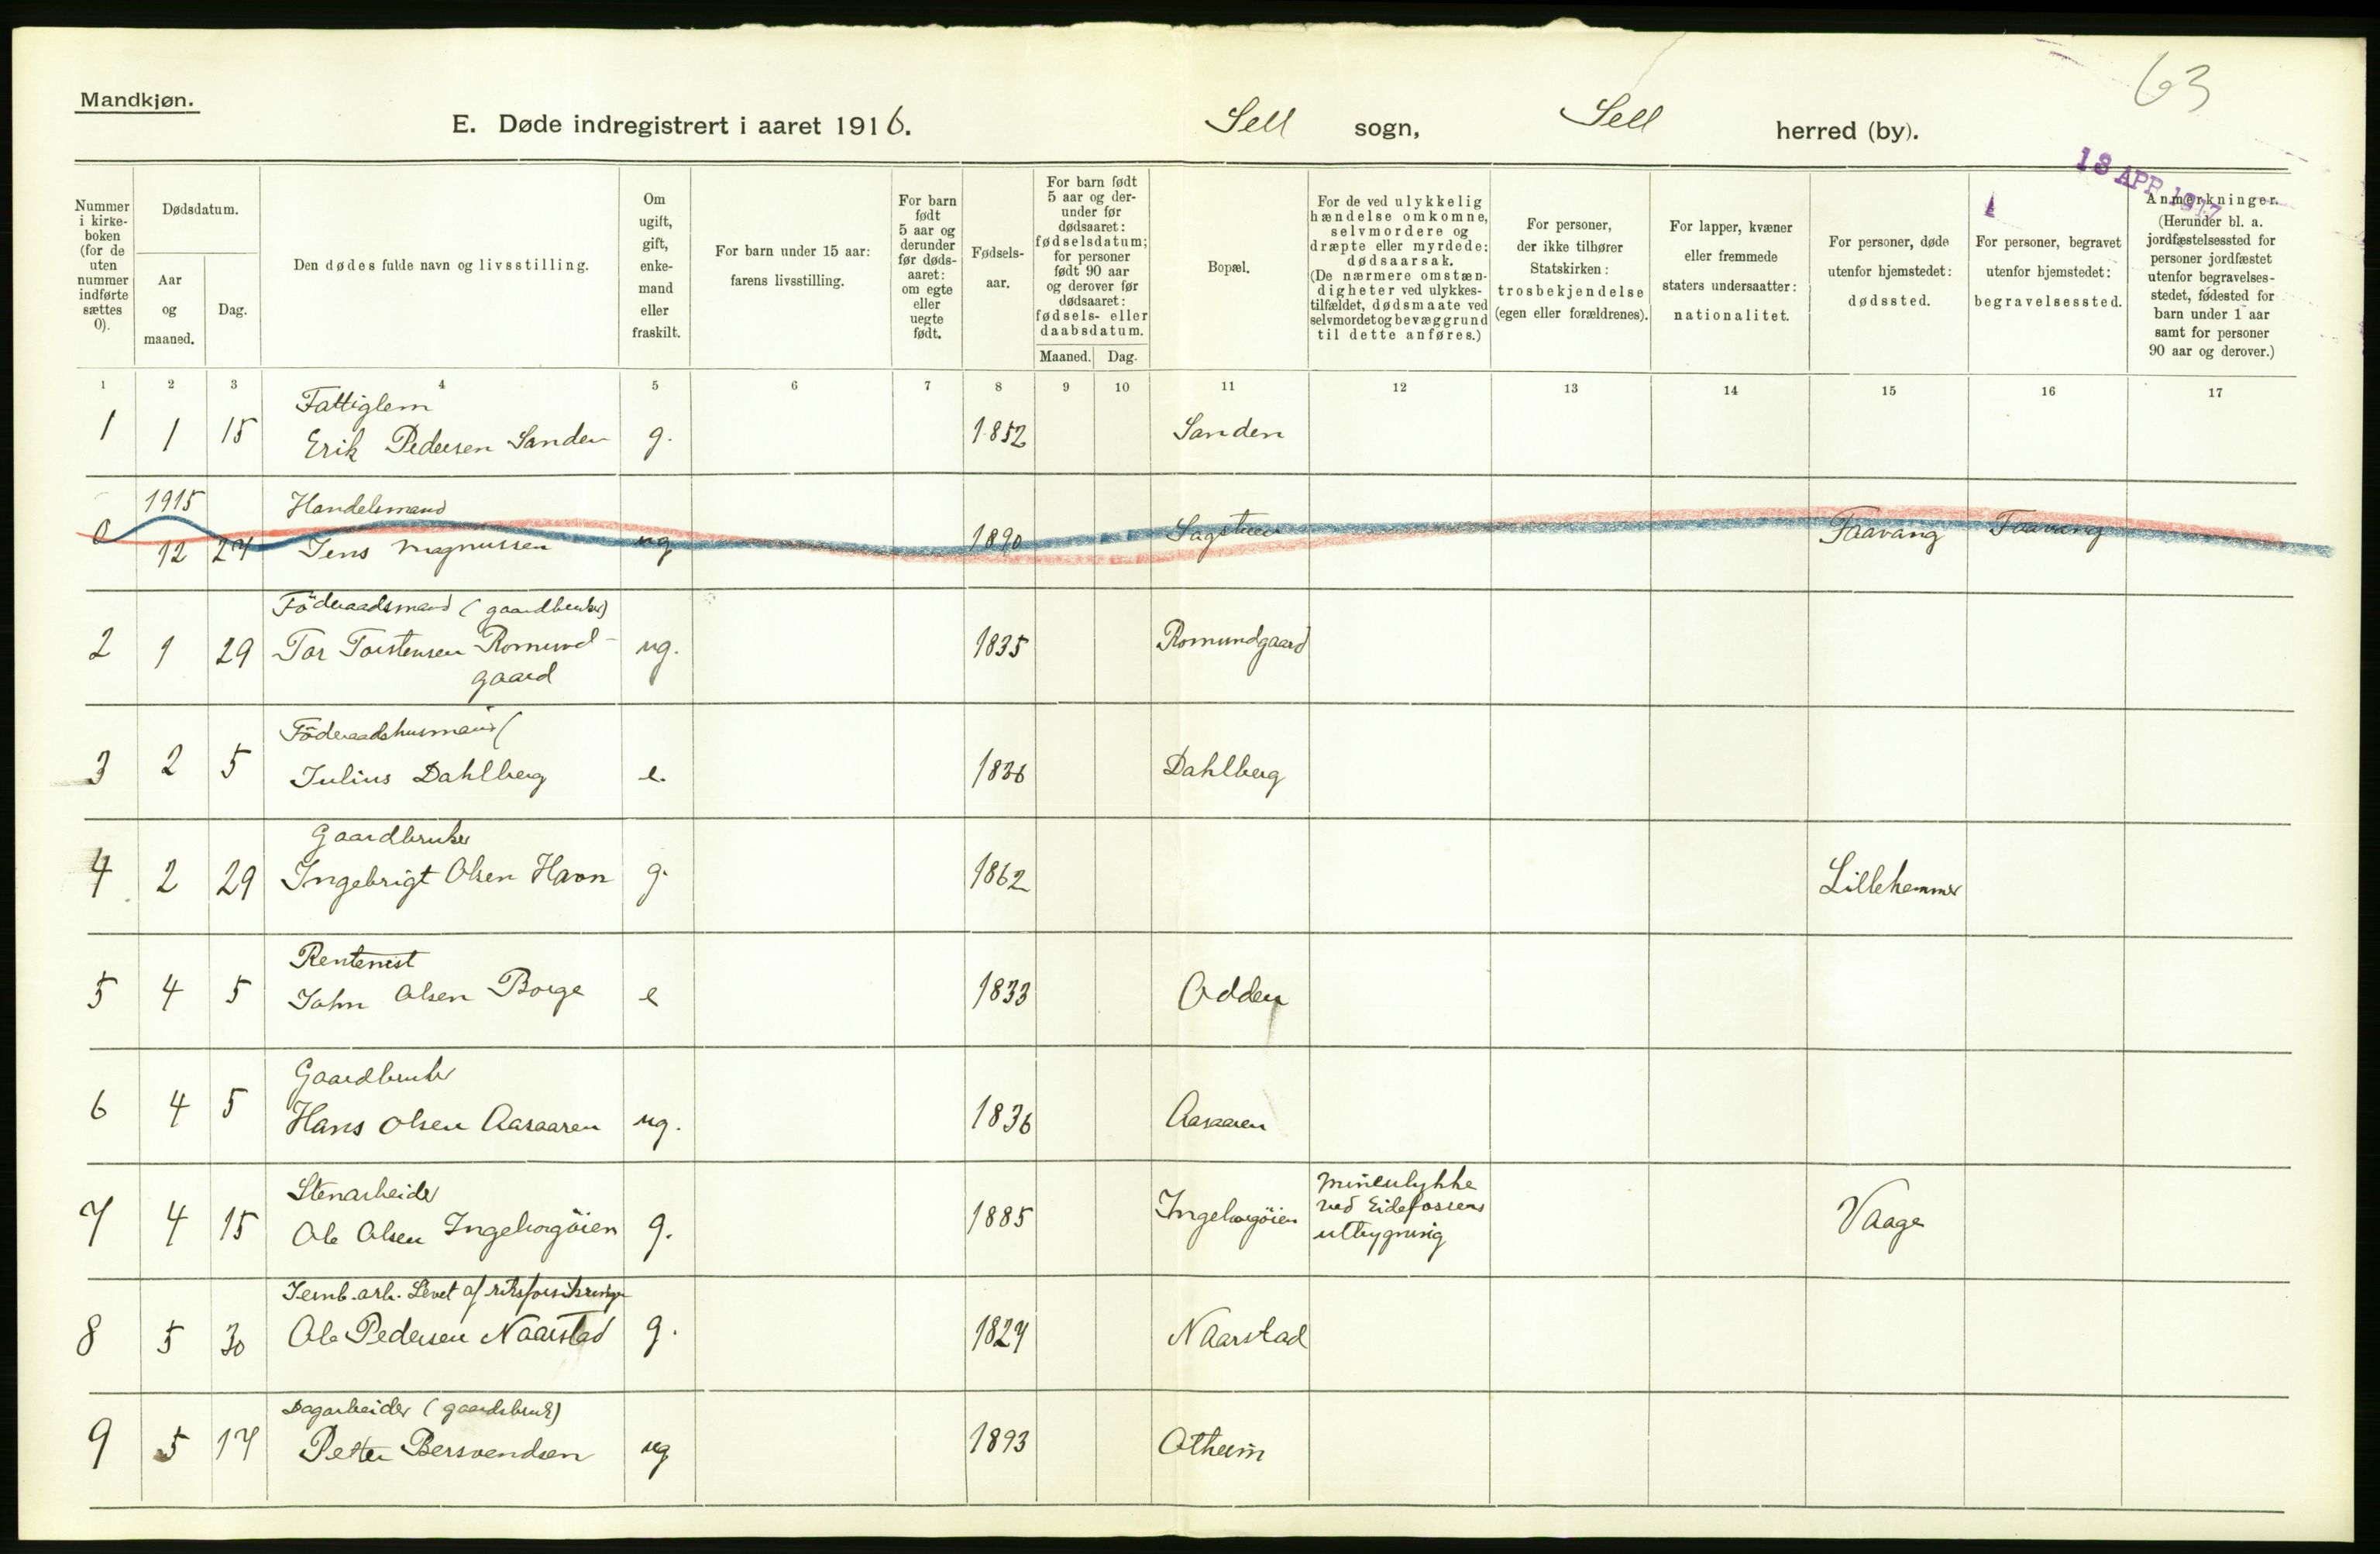 63
Mandkjøn.
E. Døde indregistrert i aaret 1916.
Sell sogn, Sell herred (by).
18 APR 1917
Nummer i kirke-boken (for de uten nummer indførte sættes 0).
Dødsdatum.
Aar og maaned.
Dag.
Den dødes fulde navn og livsstilling.
Om ugift, gift, enke-mand eller fraskilt.
For barn under 15 aar: farens livsstilling.
For barn født 5 aar og derunder før døds-aaret: om egte eller uegte født.
Fødsels-aar.
For barn født 5 aar og der-under før dødsaaret: fødselsdatum; for personer født 90 aar og derover før dødsaaret: fødsels- eller daabsdatum.
Maaned. Dag.
Bopæl.
For de ved ulykkelig hændelse omkomne, selvmordere og dræpte eller myrdede: dødsaarsak. (De nærmere omstæn-digheter ved ulykkes-tilfældet, dødsmaate ved selvmordet og bevæggrund til dette anføres.)
For personer, der ikke tilhører Statskirken: trosbekjendelse (egen eller forældrenes).
For lapper, kvæner eller fremmede staters undersaatter: nationalitet.
For personer, døde utenfor hjemstedet: dødssted.
For personer, begravet utenfor hjemstedet: begravelsessted.
Anmerkninger. (Herunder bl. a. jordfæstelsessted for personer jordfæstet utenfor begravelses-stedet, fødested for barn under 1 aar samt for personer 90 aar og derover.)
1 2 3 4 5 6 7 8 9 10 11 12 13 14 15 16 17
Fattiglem
1 1 15 Erik Pedersen Sanden g. 1852 Sanden
1915 Handelsmand
0 12 27 Jens Magnussen ug 1890 Sagstuen Faavang Faavang
Föderaadsmand (gaardbruker)
2 1 29 Tor Torstensen Romund- ug. 1835 Romundgaard
gaard
Föderaadshusmand (
3 2 5 Julius Dahlberg e. 1836 Dahlberg
Gaardbruker
4 2 29 Ingebrigt Olsen Havn g. 1862 Lillehammer
Rentenist
5 4 5 John Olsen Borge e 1833 Odden
Gaardbruker
6 4 5 Hans Olsen Aasaaren ug. 1836 Aasaaren
Stenarbeider
7 4 15 Ole Olsen Ingeborgöien g. 1885 Ingeborgöien Mineulykke ved Eidefossens utbygning Vaage
Jernb. arb. Levet af
8 5 30 Ole Pedersen Naarstad g. 1827 Naarstad
Dagarbeider (gaardsbruk)
9 5 17 Petter Bersvendsen ug 1893 Ottheim